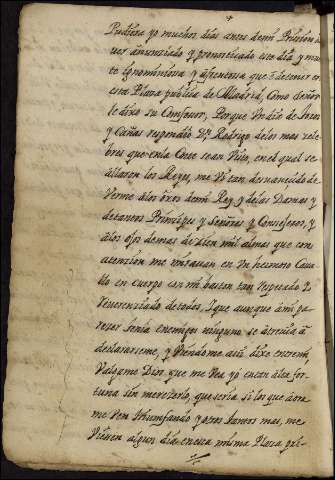 Pudiera yo muchos dias antes demi Prision a
uer anunziado y pronosticado este dia y mu
te Ygnominiosa y afrentosa que è detener en
esta Plaza publica de Madrid, Como señor
le dixo su Confesor, Porque Un dia de toros
y Cañas respondio Dn. Rodrigo delos mas zele
bres que enla Corte sean Visto, en el qual se
allaron los Reyes, me Vi tan desvanezido de
Verme alos ojos demi Rey y delas Damas y
detantos Prinzipes y Señores y Consejeros, y
alos ojos demas de zien mil almas que con
atenzion me mirauan, en Un hermoso Caua
llo en cuerpo con mi baston tan Respetado y
Reverenziado detodos, Yque aunque ami pa
rezer tenia enemigos ninguno se atreuia à
declararseme, y Viendome assi dixe entremi,
Valgame Dios que me Vea yo en tan alta for
tuna sin merezerlo, que seria si los que aora
me Ven triumfando y otros tantos mas, me
Viesen algun dia en esta misma Plaza pri-